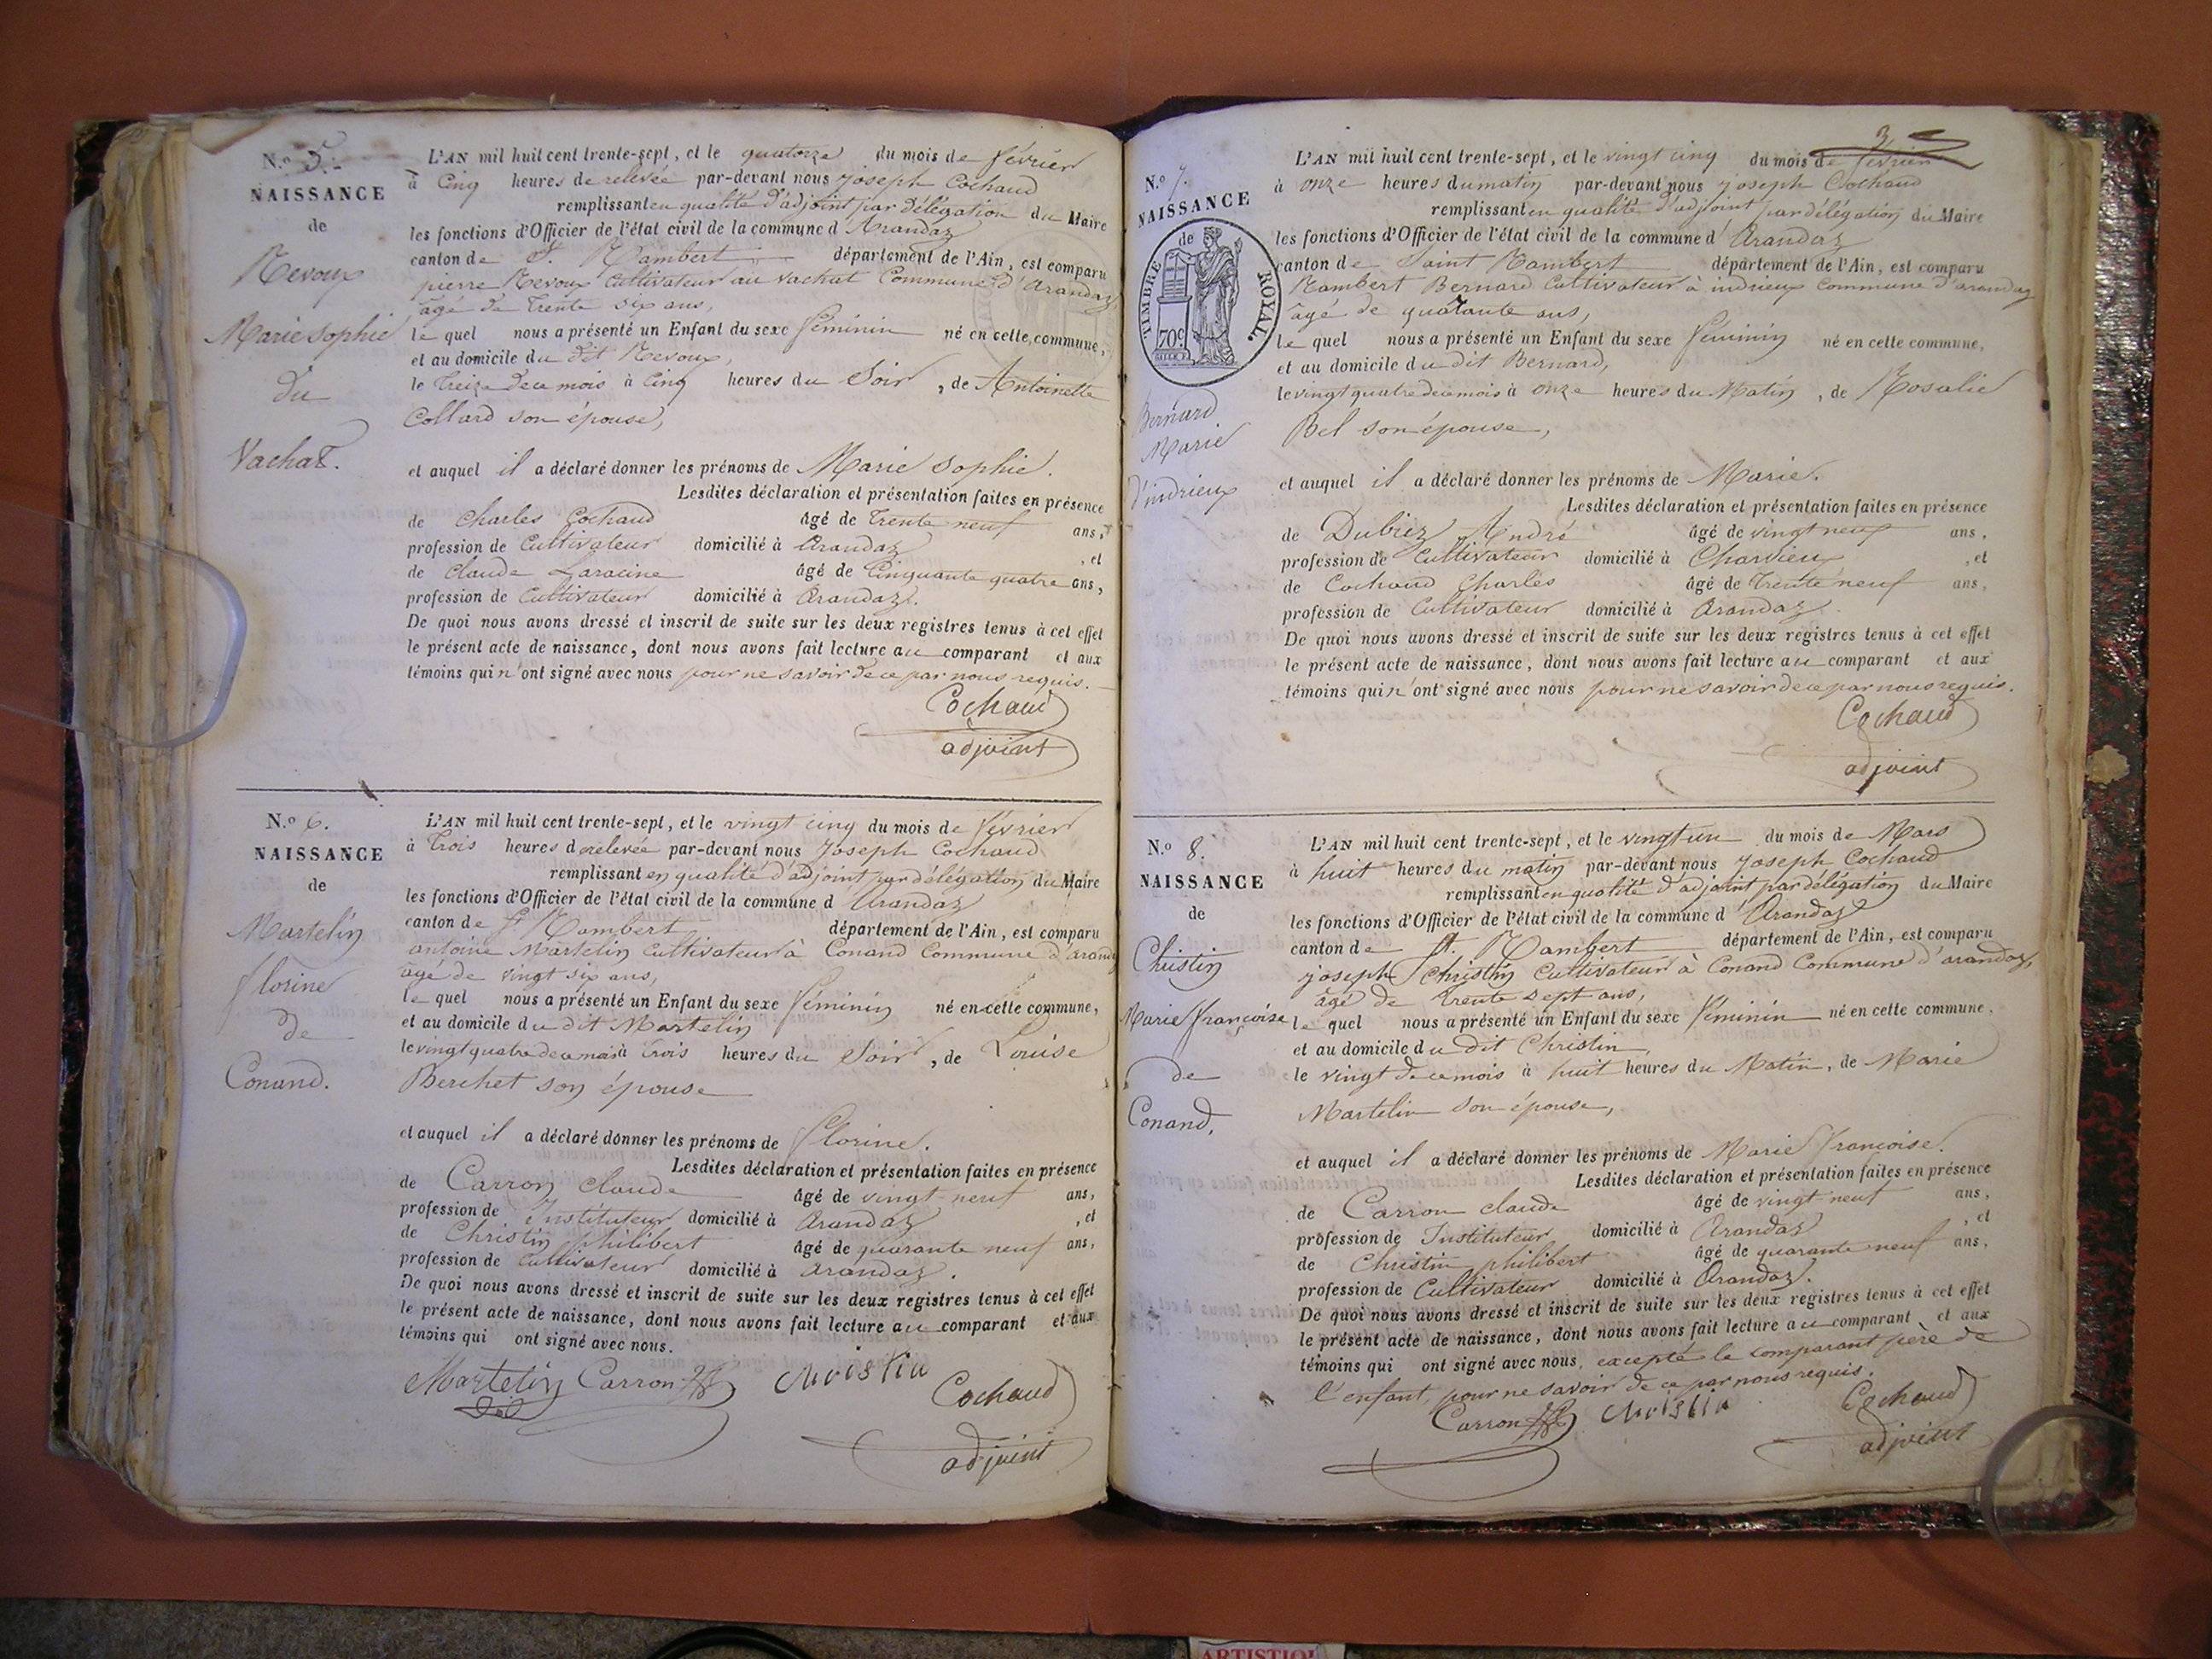 N.º 5.
NAISSANCE
de
Revoux
Marie Sophie
du
Vachat.
L'AN mil huit cent trente-sept, et le quatorze du mois de février
à cinq heures de relevée par-devant nous joseph Cochaud
remplissant en qualité d'adjoint par délégation du Maire
les fonctions d'Officier de l'état civil de la commune d'Arandaz
canton de St. Rambert département de l'Ain, est comparu
pierre Revoux Cultivateur au vachat Commune d'Arandaz,
âgé de trente six ans,
le quel nous a présenté un Enfant du sexe féminin né en cette commune,
et au domicile du dit Revoux,
le treize de ce mois à cinq heures du soir, de Antoinette
Collard son épouse,
et auquel il a déclaré donner les prénoms de Marie Sophie.
Lesdites déclaration et présentation faites en présence
de Charles Cochaud âgé de trente neuf ans,
profession de Cultivateur domicilié à Arandaz, et
de Claude Laracine âgé de Cinquante quatre ans,
profession de Cultivateur domicilié à Arandaz.
De quoi nous avons dressé et inscrit de suite sur les deux registres tenus à cet effet
le présent acte de naissance, dont nous avons fait lecture au comparant et aux
témoins qui n'ont signé avec nous pour ne savoir de ce par nous requis.
Cochaud
adjoint
N.º 6.
NAISSANCE
de
Martelin
florine
de
Conand.
L'AN mil huit cent trente-sept, et le vingt cinq du mois de février
à trois heures de relevée par-devant nous joseph Cochaud
remplissant en qualité d'adjoint par délégation du Maire
les fonctions d'Officier de l'état civil de la commune d'Arandaz
canton de St Rambert département de l'Ain, est comparu
antoine Martelin Cultivateur à Conand Commune d'arandaz
âgé de vingt six ans,
le quel nous a présenté un Enfant du sexe féminin né en cette commune,
et au domicile du dit Martelin
le vingt quatre de ce mois à trois heures du soir, de Louise
Berchet son épouse
et auquel il a déclaré donner les prénoms de florine.
Lesdites déclaration et présentation faites en présence
de Carron claude âgé de vingt neuf ans,
profession de Instituteur domicilié à Arandaz, et
de Christin philibert âgé de quarante neuf ans,
profession de Cultivateur domicilié à Arandaz.
De quoi nous avons dressé et inscrit de suite sur les deux registres tenus à cet effet
le présent acte de naissance, dont nous avons fait lecture au comparant et aux
témoins qui ont signé avec nous.
Martelin Carron Christin Cochaud
adjoint
3
N.º 7.
NAISSANCE
de
TIMBRE ROYAL.
70c
Bernard
Marie
d'indrieux
L'AN mil huit cent trente-sept, et le vingt cinq du mois de février
à onze heures du matin par-devant nous joseph Cochaud
remplissant en qualité d'adjoint par délégation du Maire
les fonctions d'Officier de l'état civil de la commune d'Arandaz
canton de Saint Rambert département de l'Ain, est comparu
Rambert Bernard Cultivateur à indrieux Commune d'arandaz
âgé de quarante ans,
le quel nous a présenté un Enfant du sexe féminin né en cette commune,
et au domicile du dit Bernard,
le vingt quatre de ce mois à onze heures du Matin, de Rosalie
Bel son épouse,
et auquel il a déclaré donner les prénoms de Marie.
Lesdites déclaration et présentation faites en présence
de Dubiez André âgé de vingt neuf ans,
profession de Cultivateur domicilié à Charvieux, et
de Cochaud Charles âgé de trente neuf ans,
profession de Cultivateur domicilié à Arandaz.
De quoi nous avons dressé et inscrit de suite sur les deux registres tenus à cet effet
le présent acte de naissance, dont nous avons fait lecture au comparant et aux
témoins qui n'ont signé avec nous pour ne savoir de ce par nous requis.
Cochaud
adjoint
N.º 8.
NAISSANCE
de
Christin
Marie françoise
de
Conand.
L'AN mil huit cent trente-sept, et le vingt un du mois de Mars
à huit heures du matin par-devant nous joseph Cochaud
remplissant en qualité d'adjoint par délégation du Maire
les fonctions d'Officier de l'état civil de la commune d'Arandaz
canton de St. Rambert département de l'Ain, est comparu
joseph Christin Cultivateur à Conand Commune d'arandaz,
âgé de trente sept ans,
le quel nous a présenté un Enfant du sexe féminin né en cette commune,
et au domicile du dit Christin,
le vingt de ce mois à huit heures du Matin, de Marie
Martelin son épouse,
et auquel il a déclaré donner les prénoms de Marie françoise.
Lesdites déclaration et présentation faites en présence
de Carron claude âgé de vingt neuf ans,
profession de Instituteur domicilié à Arandaz, et
de Christin philibert âgé de quarante neuf ans,
profession de Cultivateur domicilié à Arandaz.
De quoi nous avons dressé et inscrit de suite sur les deux registres tenus à cet effet
le présent acte de naissance, dont nous avons fait lecture au comparant et aux
témoins qui ont signé avec nous, excepté le comparant père de
l'enfant, pour ne savoir de ce par nous requis.
Carron Christin Cochaud
adjoint